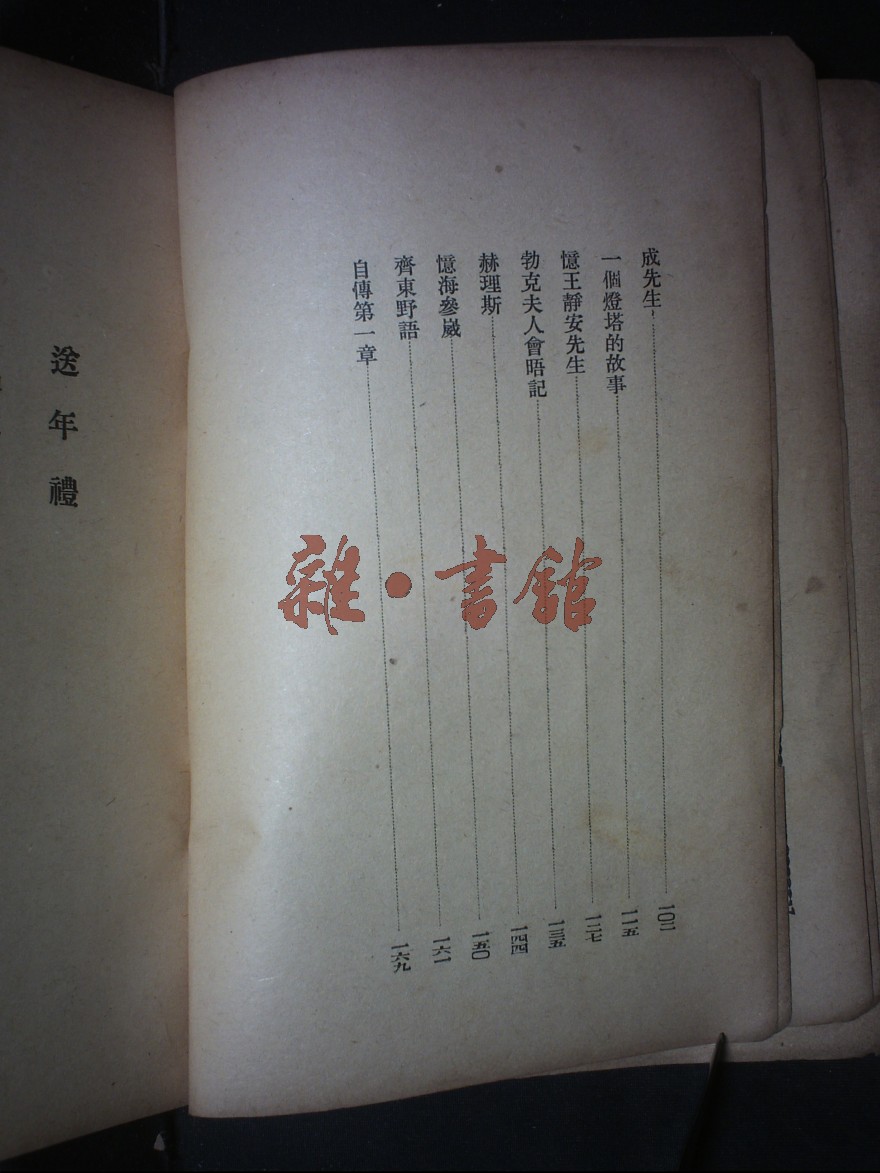 成先生 一〇二
一個燈塔的故事 一一五
憶王靜安先生 一二七
勃克夫人會晤記 一三五
赫理斯 一四四
憶海參崴 一五〇
齊東野語 一六一
自傳第一章 一六九
送年禮
雜•書館